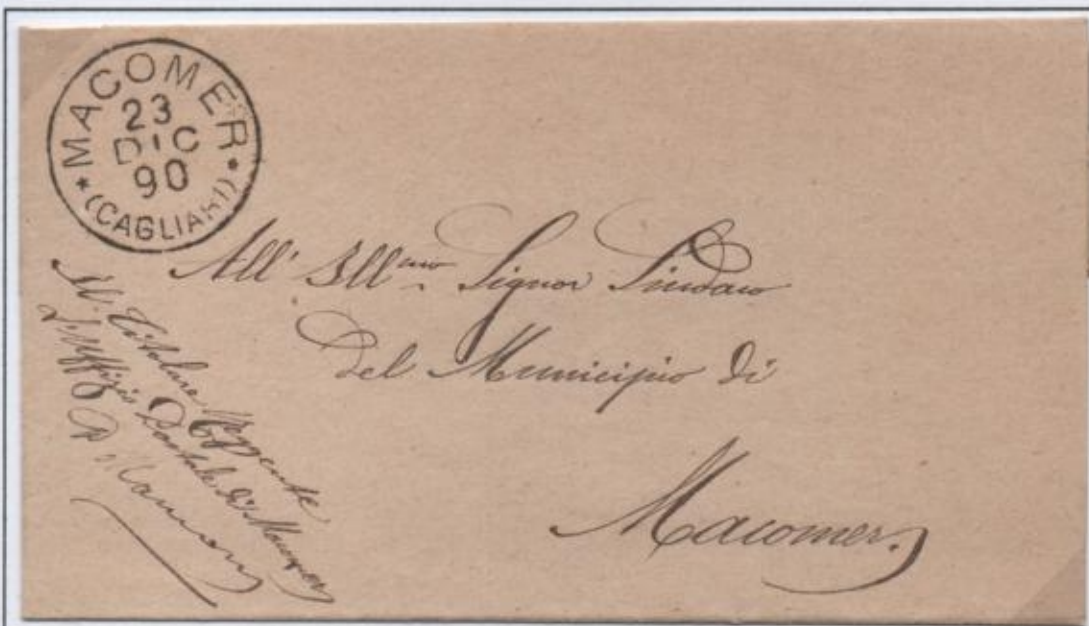 MACOMER
23
DIC
90
* (CAGLIARI) *
All' Ill.mo Signor Sindaco
del Municipio di
Macomer.
Il Titolare Reggente
L'Uffizio Postale di Macomer